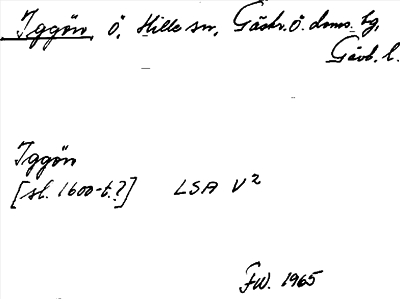 Iggön, Ö, Hille sn, Gästr. Ö. doms. hg,
Gävb. l.
Iggön
[sl. 1600-t.?] LSA V²
FW. 1965